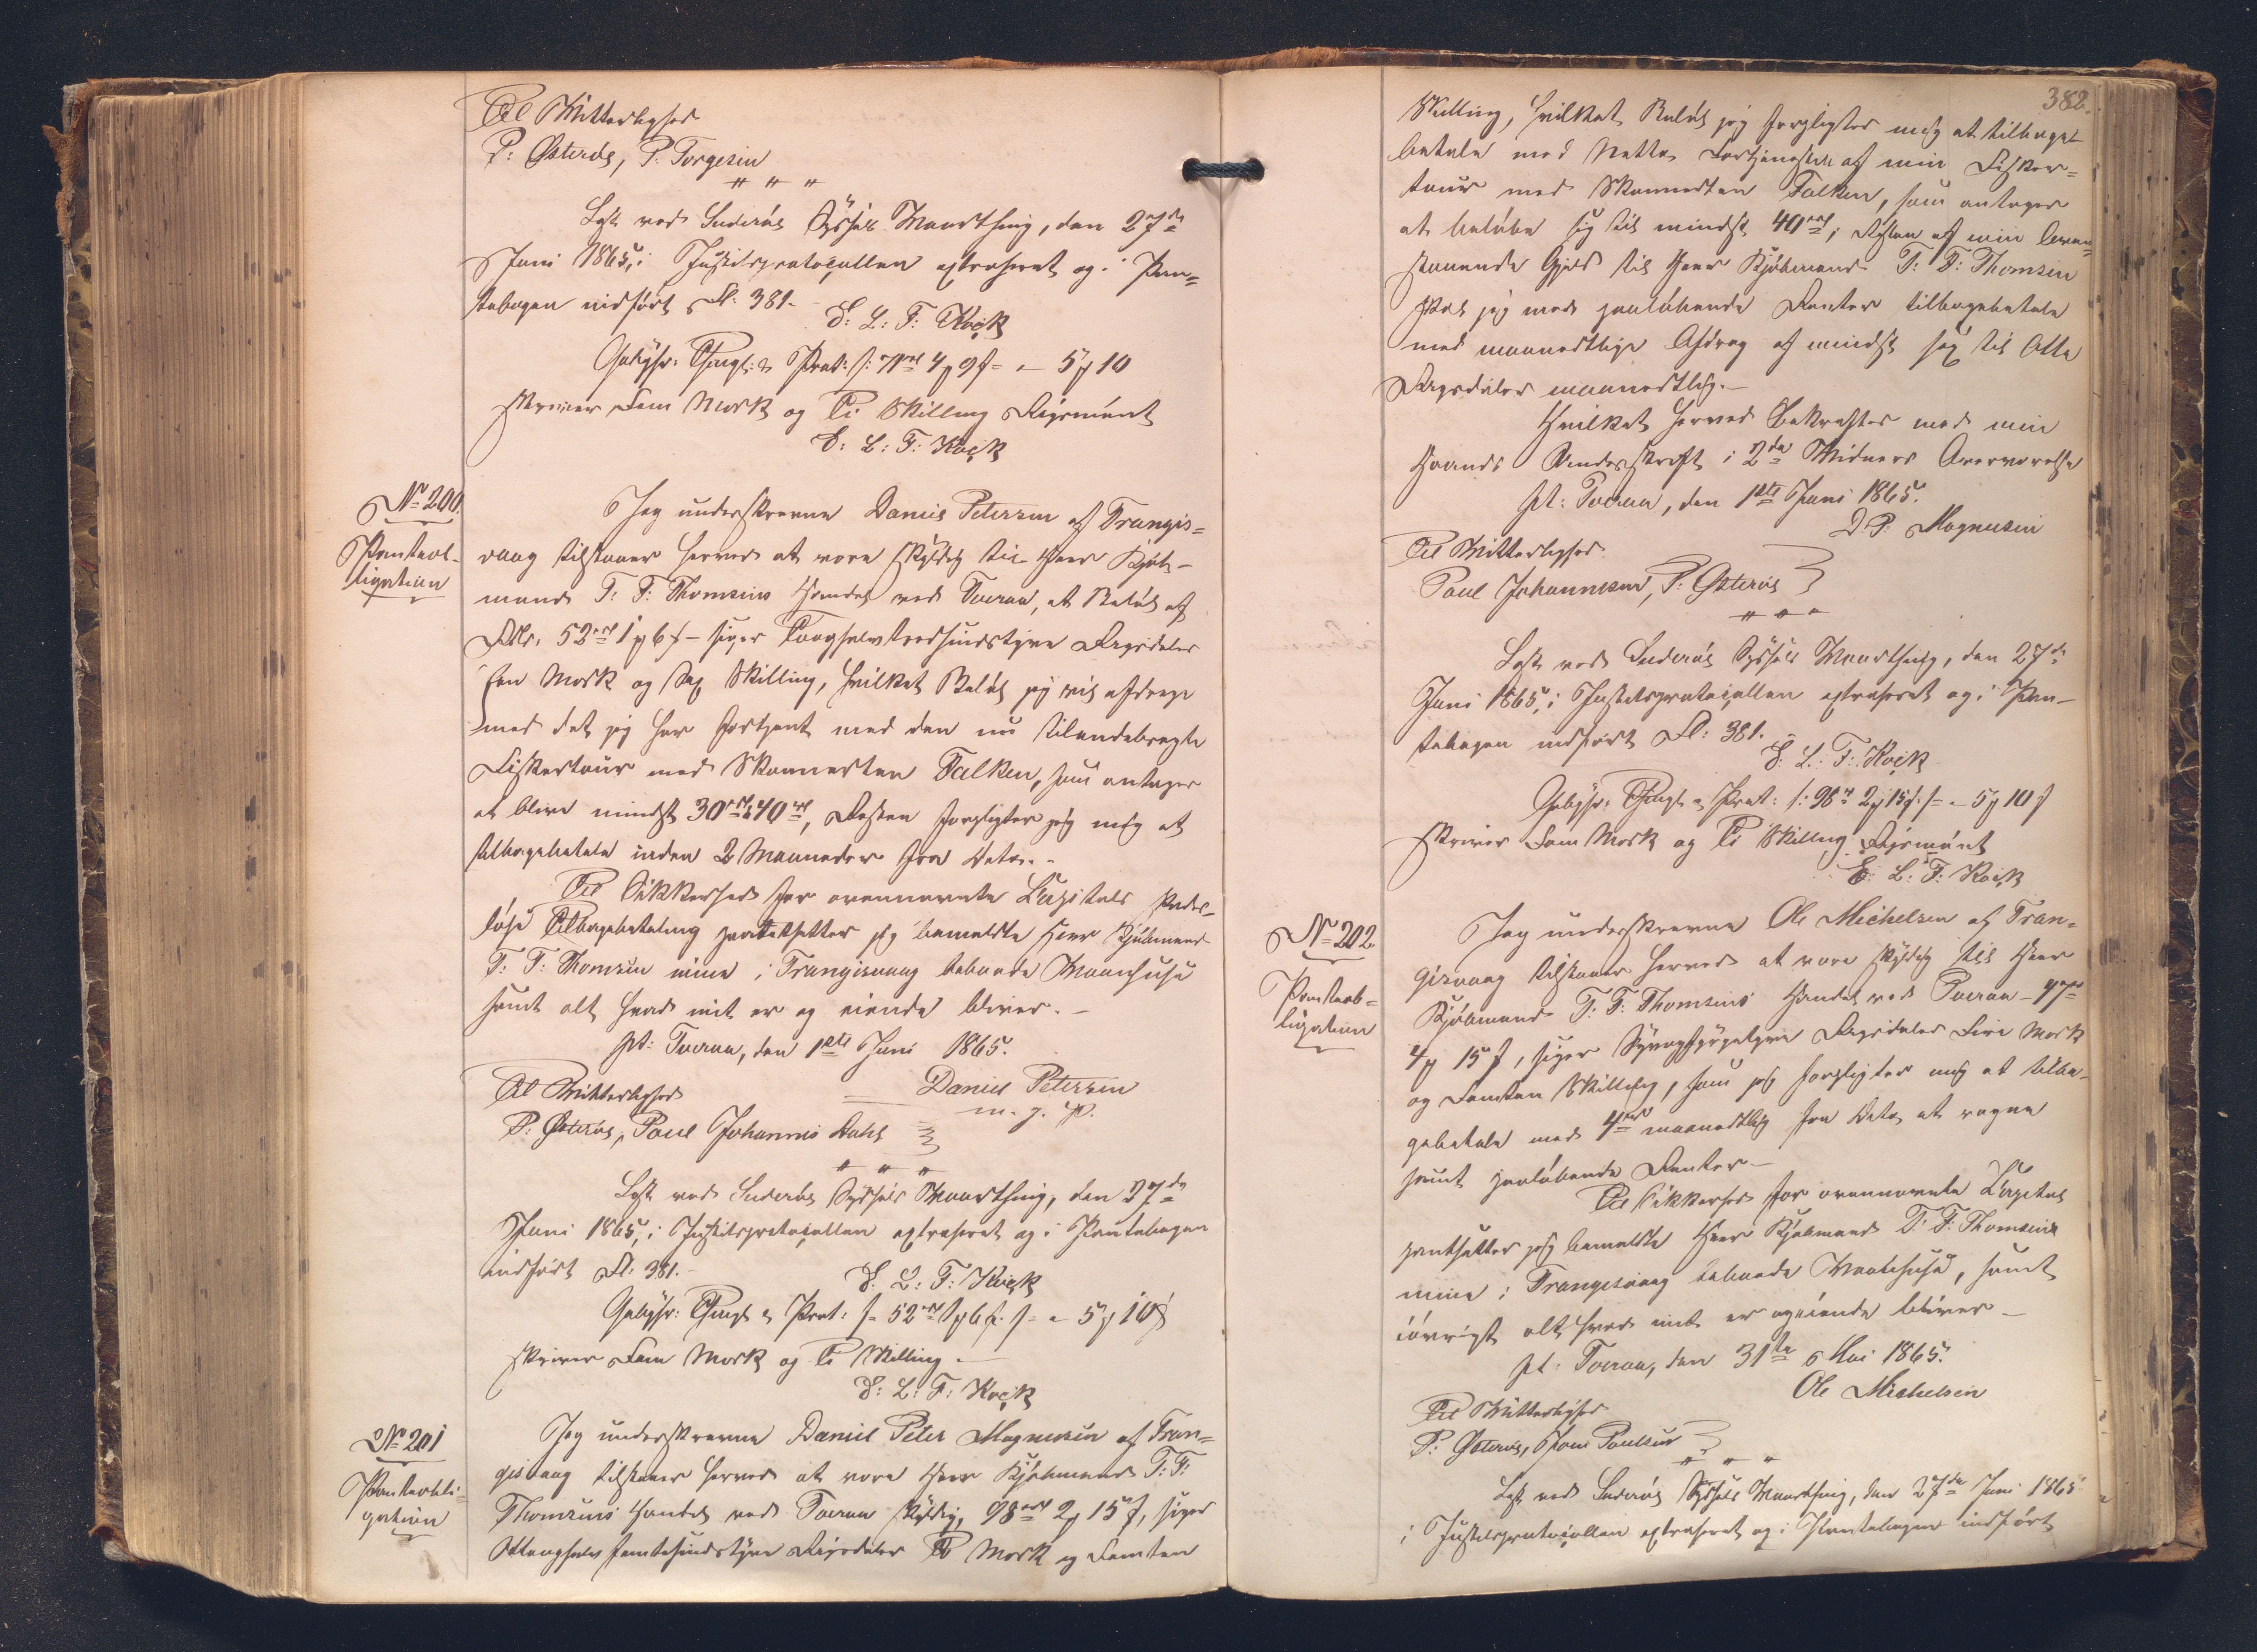 Til Vitterlighed
P: Østerøe, P: Torgersen
" " "
Læst ved Suderøe Syssels Vaarthing, den 27de
Juni 1865, i Justitsprotocollen extraheret og i Pan=
tebogen indført Fl: 381.
E: L: F: Kock
Gebyhr: Thingl: & Prot:
skriver Fem Mark og Ti Skilling Rigsmønt
E: L: F: Kock
No 200.
Panteob-
ligation
Jeg underskrevne Daniel Petersen af Trangis=
vaag tilstaaer herved at være skyldig til Herr Kjøb-
mand T: F: Thomsens Handel ved Tveraa, et Beløb af
Rdlr. 52 rd 1 mk 6 s – siger Tooghalvtredsindstyve Rigsdaler
Een Mark og Sex Skilling, hvilket Beløb jeg vil afdrage
med det jeg har fortjent med den nu tilendebragte
Fiskertour med Skonnerten Falken, som antages
at blive mindst 30 rd à 40 rd, Resten forpligter jeg mig at
tilbagebetale inden 2 Maaneder fra Dato.-
Til Sikkerhed for ovennævnte Capitals skades-
løse Tilbagebetaling pantsætter jeg bemeldte Herr Kjøbmand
T: F: Thomsen mine i Trangisvaag beboende Vaanhuse
samt alt hvad mit er og eiende bliver.-
pt: Tveraa, den 1ste Juni 1865.
Daniel Petersen
m. f. P.
Til Vitterlighed
P: Østerøe, Poul Johannes Dahl
" " "
Læst ved Suderøe Syssels Vaarthing, den 27de
Juni 1865, i Justitsprotocollen extraheret og i Pantebogen
indført Fl: 381.-
E: L: F: Kock
Gebyhr: Thingl: & Prot: /: 52 rd 1 mk 6 s :/ = 5 mk 10 s
skriver Fem Mark og Ti Skilling.-
E: L: F: Kock
No 201
Panteobli=
gation
Jeg underskrevne Daniel Peter Magnusen af Tran=
gisvaag tilstaaer herved at være Herr Kjøbmand T: F:
Thomsens Handel ved Tveraa skyldig, 98 rd 2 mk 15 s, siger
Otteoghalvfemtesindstyve Rigsdaler To Mark og Femten
382.
Skilling, hvilket Beløb jeg forpligter mig at tilbage-
betale med Netto Fortjenesten af min Fisker=
tour med Skonnerten Falken, som antages
at beløbe sig til mindst 40 rd, Resten af min
Gjeld til Herr Kjøbmand T: F: Thomsen
skal jeg med paaløbende Renter tilbagebetale
med maanedlige Afdrag af mindst sex til Otte
Rigsdaler maanedlig.-
Hvilket herved bekræftes med min
Haands Underskrift i 2de Vidners Overværelse
pt: Tveraa, den 1ste Juni 1865.
D. P. Magnusen
Til Vitterlighed
Poul Johannesen, P: Østerøe
" " "
Læst ved Suderøe Syssels Vaarthing, den 27de
Juni 1865, i Justitsprotocollen extraheret og i Pan-
tebogen indført Fl: 381.-
E: L: F: Kock
Gebyhr: Thingl: & Prot: /: 98 rd 2 mk 15 s :/ = 5 mk 10 s
skriver Fem Mark og Ti Skilling Rigsmønt
E: L: F: Kock
No 202.
Panteob=
ligation
Jeg underskrevne Ole Michelsen af Tran=
gisvaag tilstaaer herved at være skyldig til Herr
Kjøbmand T: F: Thomsens Handel ved Tveraa – 77 rd
4 mk 15 s, siger Syvoghalvfjerdsindstyve Rigsdaler Fire Mark
og Femten Skilling, som jeg forpligter mig at tilba-
gebetale med 4 rd maanedlig fra Dato at regne
samt paaløbende Renter.-
Til Sikkerhed for ovennævnte Capital
pantsætter jeg bemeldte Herr Kjøbmand T: F: Thomsen
mine i Trangisvaag beboende Vaanhuse, samt
iøvrigt alt hvad mit er og eiende bliver.-
pt: Tveraa, den 31te Mai 1865.
Ole Michelsen
Til Vitterlighed
P: Østerøe, Poulsen
" " "
Læst ved Suderøe Syssels Vaarthing, den 27de Juni 1865
i Justitsprotocollen extraheret og i Pantebogen indført